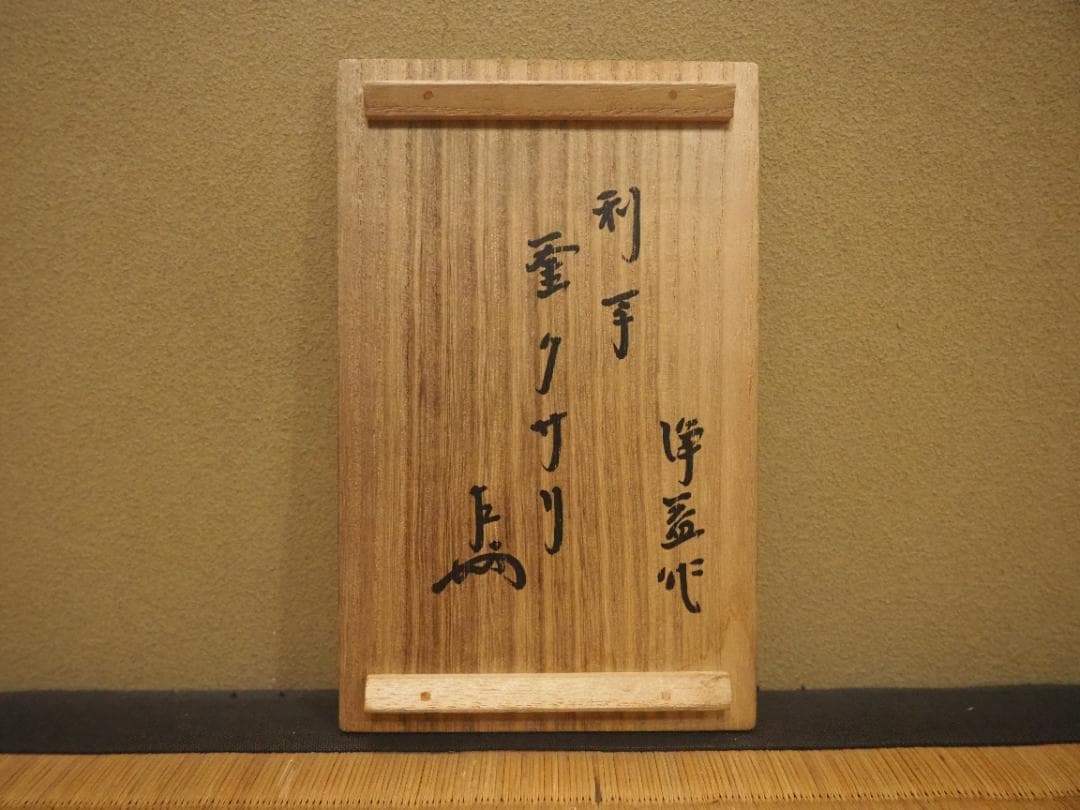 浄益作
利手
釜クサリ